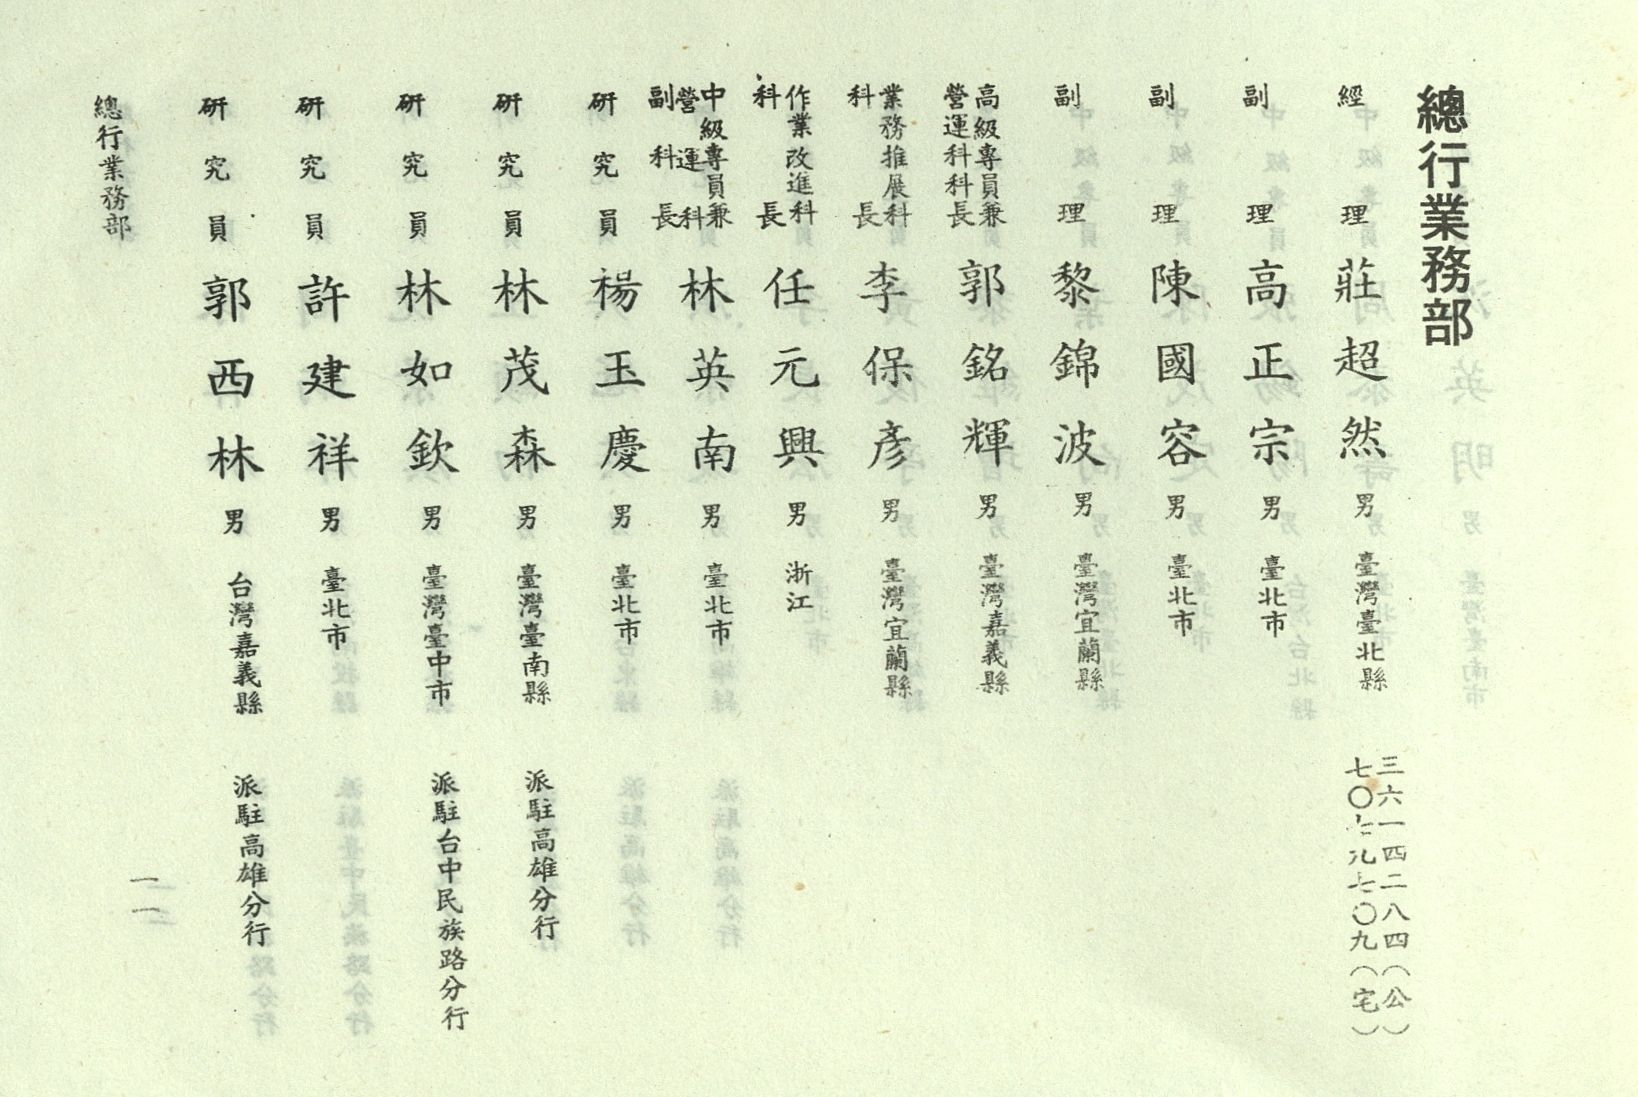 總行業務部
經理 莊超然 男 臺灣臺北縣 三六一四二八四（公）
七〇七九七〇九（宅）
副理 高正宗 男 臺北市
副理 陳國容 男 臺北市
副理 黎錦波 男 臺灣宜蘭縣
高級專員兼營運科科長 郭銘輝 男 臺灣嘉義縣
業務推展科科長 李保彥 男 臺灣宜蘭縣
作業改進科科長 任元興 男 浙江
中級專員兼營運科副科長 林英南 男 臺北市
研究員 楊玉慶 男 臺北市
研究員 林茂森 男 臺灣臺南縣 派駐高雄分行
研究員 林如欽 男 臺灣臺中市 派駐台中民族路分行
研究員 許建祥 男 臺北市
研究員 郭西林 男 台灣嘉義縣 派駐高雄分行
總行業務部
一一